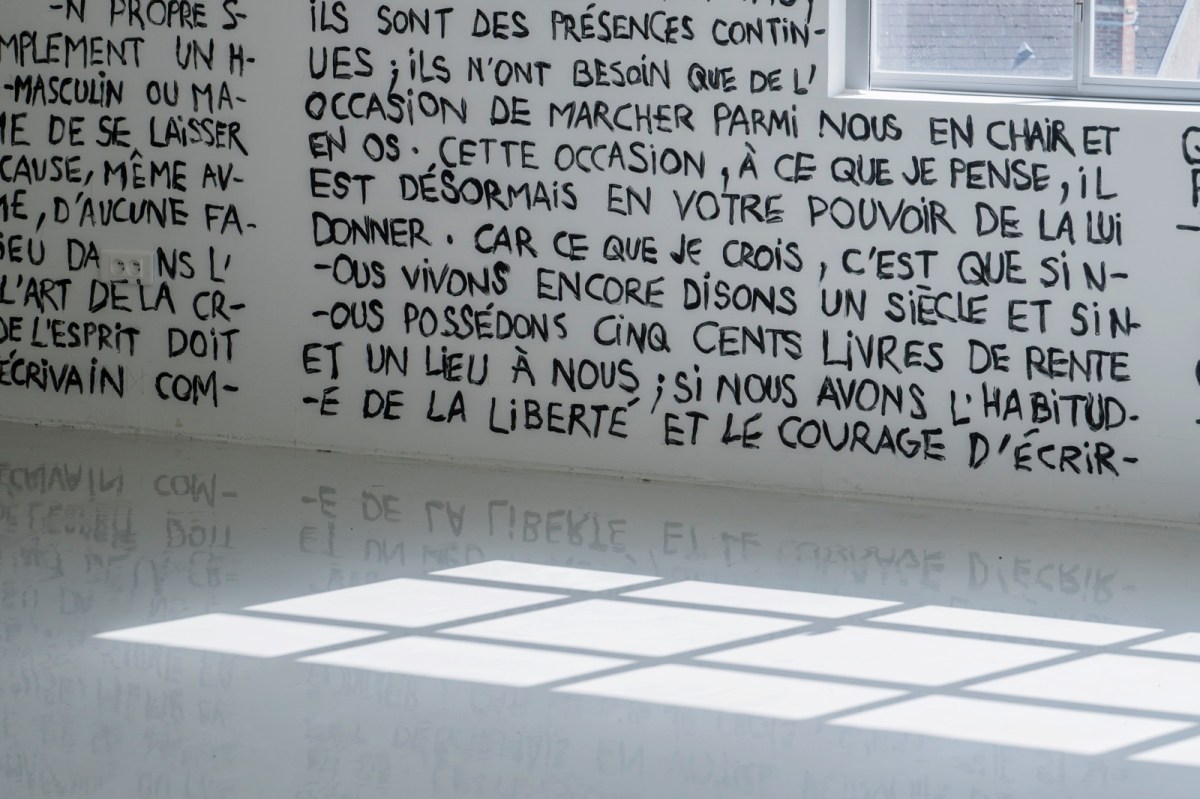 -N PROPRE S-
MPLEMENT UN H-
-MASCULIN OU MA-
DE SE LAISSER
CAUSE, MÊME AV-
, D'AUCUNE FA-
DA NS L'
L'ART DE LA CR-
DE L'ESPRIT DOIT
ÉCRIVAIN COM-
ILS SONT DES PRÉSENCES CONTIN-
UES ; ILS N'ONT BESOIN QUE DE L'
OCCASION DE MARCHER PARMI NOUS EN CHAIR ET
EN OS. CETTE OCCASION, À CE QUE JE PENSE, IL
EST DÉSORMAIS EN VOTRE POUVOIR DE LA LUI
DONNER. CAR CE QUE JE CROIS, C'EST QUE SI N-
-OUS VIVONS ENCORE DISONS UN SIÈCLE ET SI N-
-OUS POSSÉDONS CINQ CENTS LIVRES DE RENTE
ET UN LIEU À NOUS ; SI NOUS AVONS L'HABITUD-
-E DE LA LIBERTÉ ET LE COURAGE D'ÉCRIR-